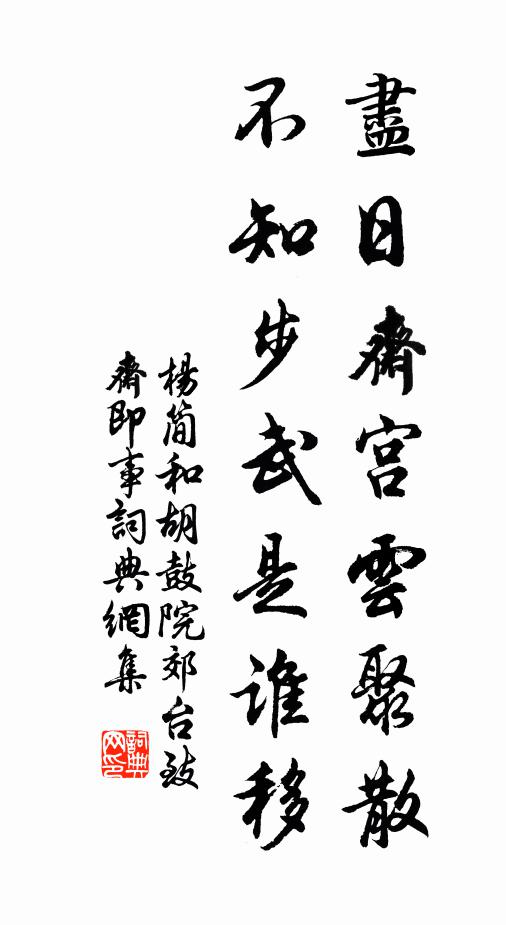 盡日齋宮雲聚散
不知步武是誰移
楊簡和胡鼓院郊台致
齋即事詞典網集
詞典
网印